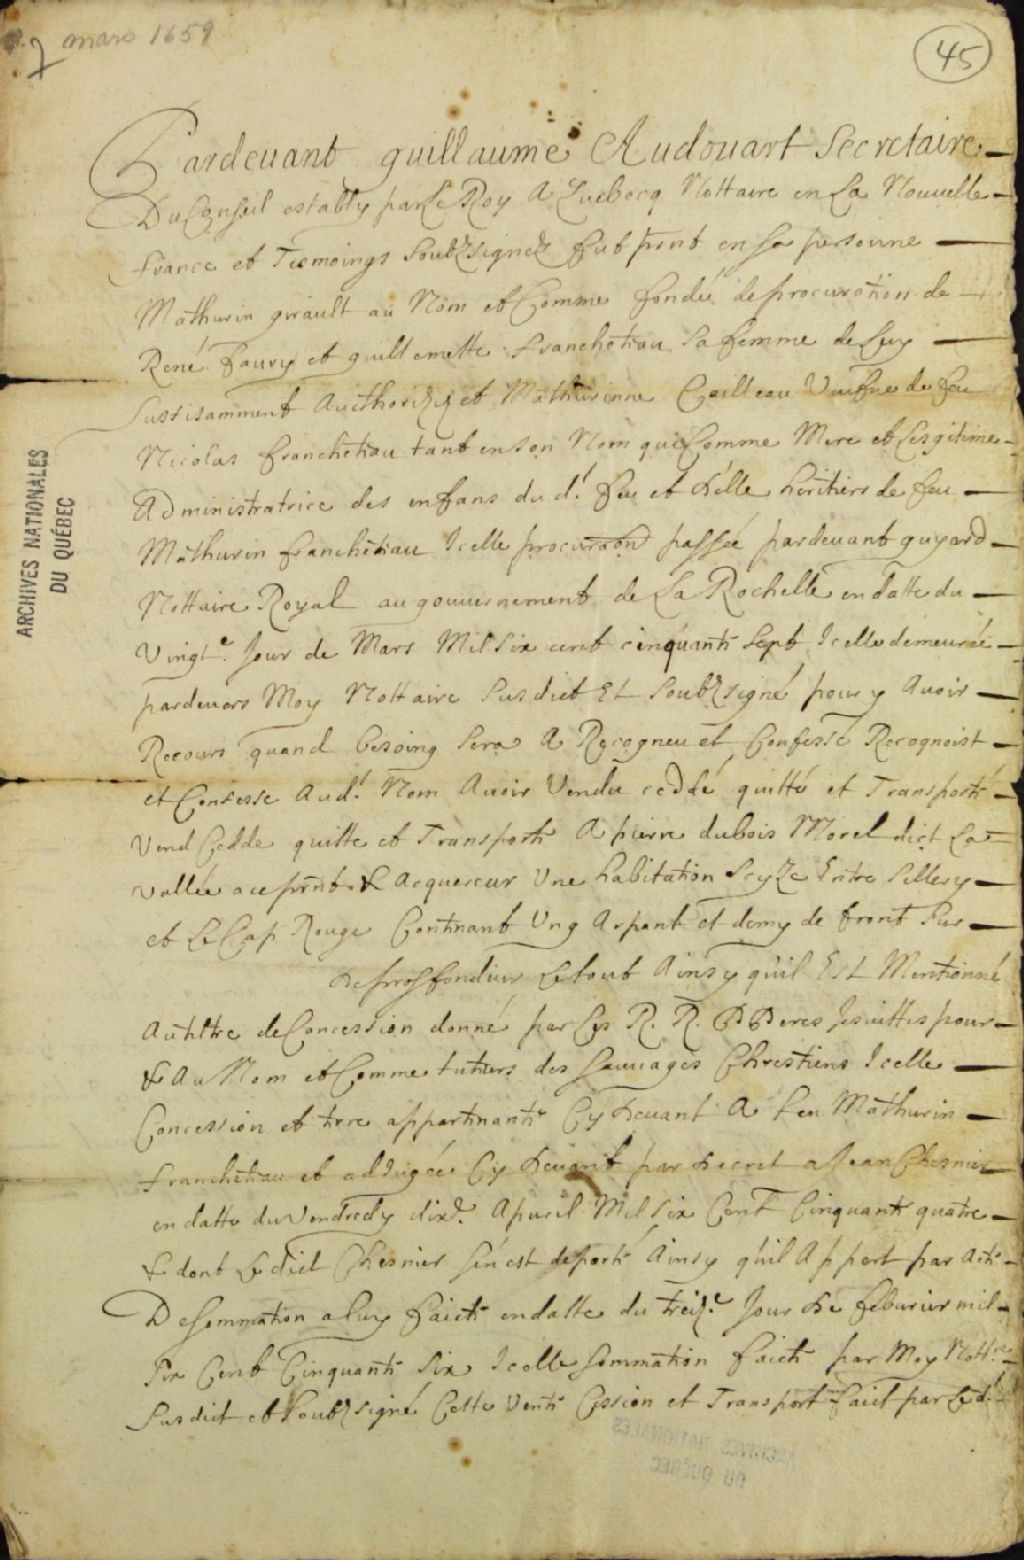 7 mars 1659
45
Pardevant guillaume Audouart Secretaire
Du Conseil estably par Le Roy A Quebecq Nottaire en La Nouuelle
france et Tesmoings soubzsignez fut prnt en sa personne
Mathurin girault au Nom et Comme fondé de procuration de
René faury et guillemette francheteau sa femme de luy
suffisamment Aucthorizée et Mathurinne Cailleau Veufue de feu
Nicolas francheteau tant en son Nom que Comme Mere et Legitime
Administratrice des enfans du d.t feu et d'elle heritiers de feu
Mathurin francheteau Icelle procuraõn passée pardeuant guyard
Nottaire Royal au gouuernement de La Rochelle en datte du
vingt.e Jour de Mars Mil six cent cinquante sept Icelle demeurée
pardeuers Moy Nottaire susdict Et soubzsigné pour y Auoir
Recours quand besoing sera A Recogneu et Confessé Recognoist
et Confesse Aud.t Nom Auoir Vendu ceddé quitté et Transporté
Vend Cedde quitte et Transporte A pierre dubois Morel dict La
vallée a ce prnt & Acquereur Une habitation scyze Entre sillery
et Le Cap Rouge Contenant Ung Arpent et demy de front sur
de proffondeur Le tout Ainsy qu'il Est Mentionné
Au tiltre de Concession donné par Les R. R. P Peres Jesuittes pour
& Au Nom et Comme tuteurs des sauuages Chrestiens Icelle
Concession et terre appartenante Cy deuant A feu Mathurin
francheteau et adiugée Cy deuant par decret a Jean Chesnier
en datte du vendredy dix.e Apuril Mil six Cent Cinquante quatre
& dont Le dict Chesnier s'en est deporté Ainsy qu'il Appert par Acte
De sommation a luy faicte en datte du treiz.e Jour de feburier mil
six Cent Cinquante six Icelle sommation faicte par Moy Nott.re
susdict et soubzsigné Cette vente Cession et Transport faict par Le d.t
ARCHIVES NATIONALES
DU QUÉBEC
ARCHIVES NATIONALES
DU QUÉBEC